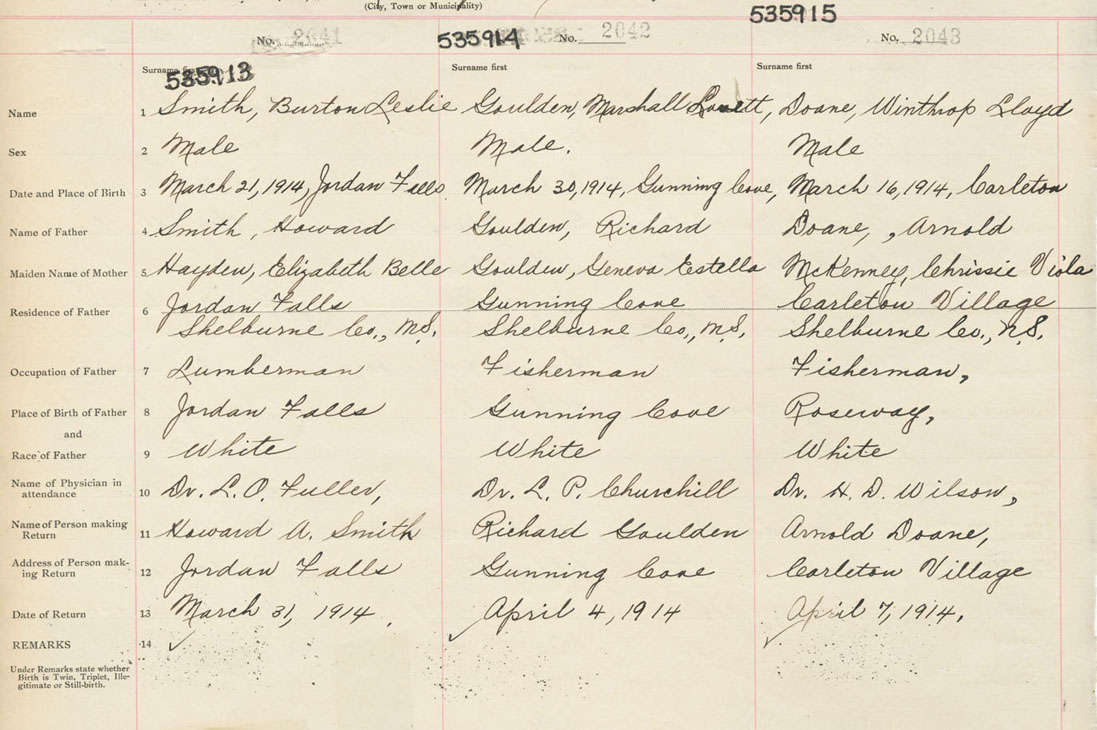 (City, Town or Municipality)
No. 2041 535914 No. 2042 535915 No. 2043
Surname first 535913 Surname first Surname first
Name 1 Smith, Burton Leslie Goulden, Marshall Lovett, Doane, Winthrop Lloyd
Sex 2 Male Male. Male
Date and Place of Birth 3 March 21, 1914, Jordan Falls March 30, 1914, Gunning Cove, March 16, 1914, Carleton
Name of Father 4 Smith, Howard Goulden, Richard Doane, , Arnold
Maiden Name of Mother 5 Hayden, Elizabeth Belle Goulden, Geneva Estella McKenney, Chrissie Viola
Residence of Father 6 Jordan Falls Gunning Cove Carleton Village
Shelburne Co., N.S. Shelburne Co., N.S. Shelburne Co., N.S.
Occupation of Father 7 Lumberman Fisherman Fisherman,
Place of Birth of Father 8 Jordan Falls Gunning Cove Roseway,
and
Race of Father 9 White White White
Name of Physician in attendance 10 Dr. L. O. Fuller, Dr. L. P. Churchill Dr. H. D. Wilson,
Name of Person making Return 11 Howard A. Smith Richard Goulden Arnold Doane,
Address of Person making Return 12 Jordan Falls Gunning Cove Carleton Village
Date of Return 13 March 31, 1914. April 4, 1914 April 7, 1914.
REMARKS 14
Under Remarks state whether
Birth is Twin, Triplet, Ille-
gitimate or Still-birth.